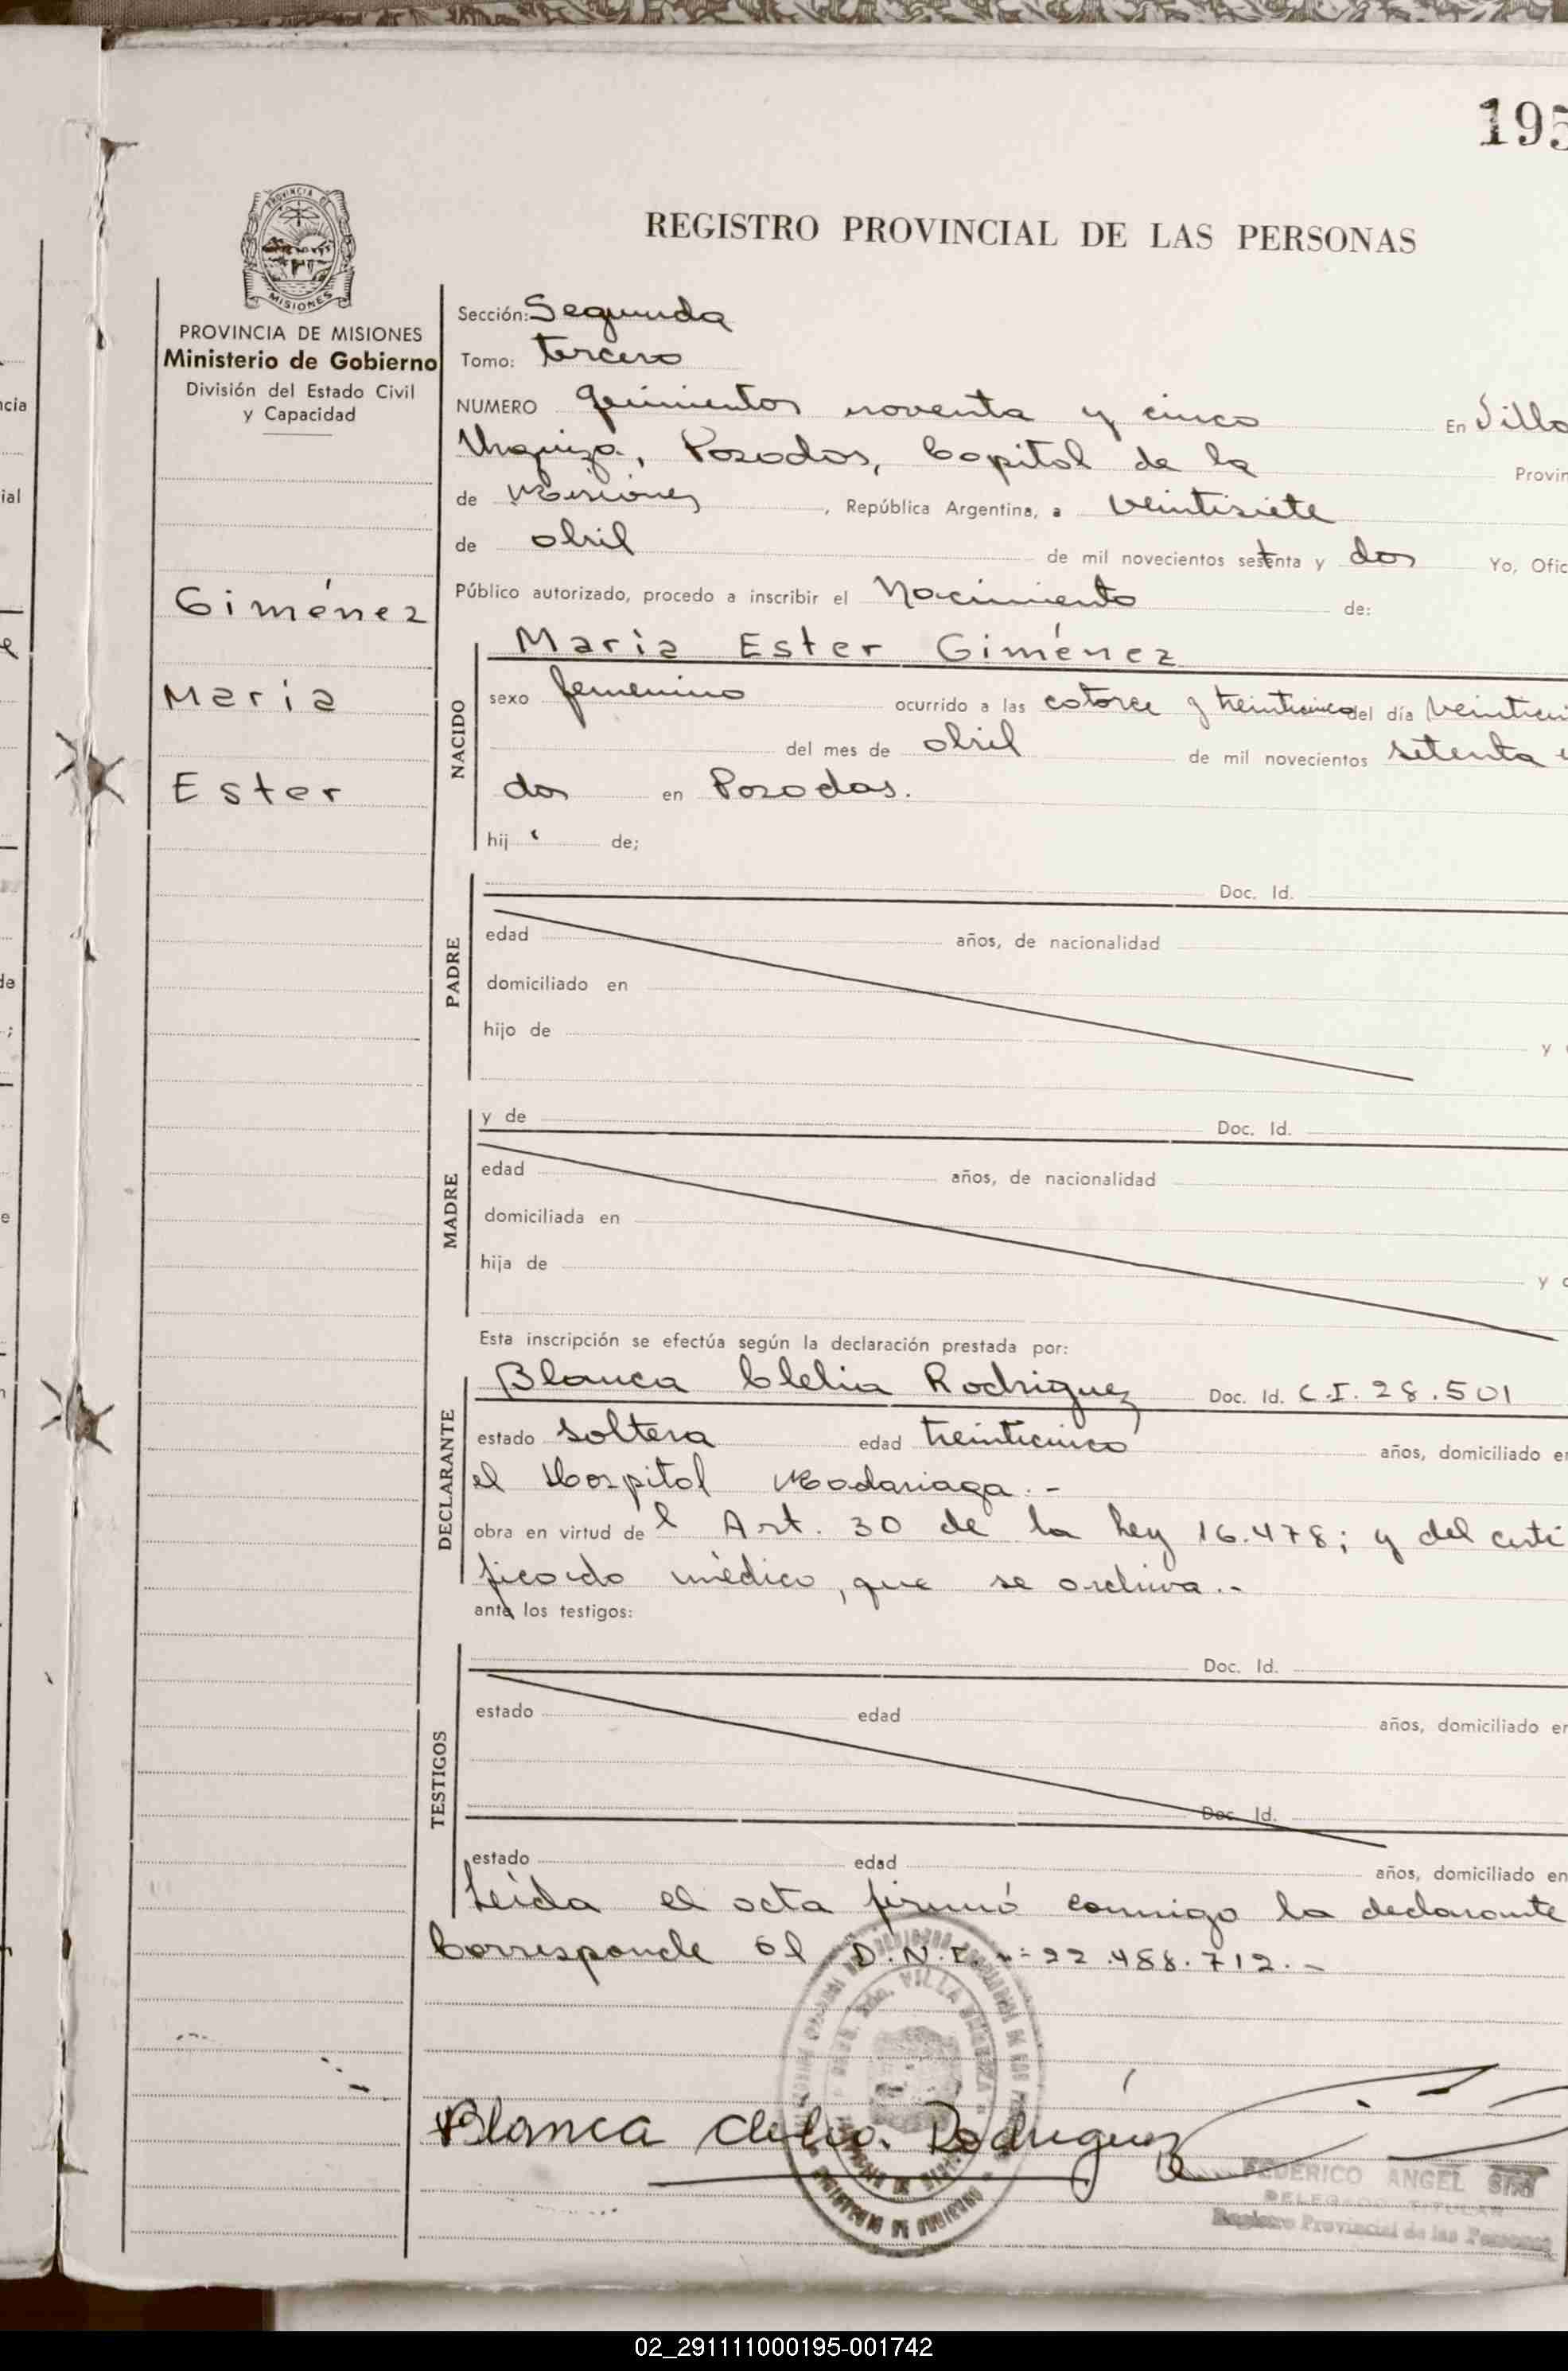 195
REGISTRO PROVINCIAL DE LAS PERSONAS
PROVINCIA DE MISIONES
Ministerio de Gobierno
División del Estado Civil
y Capacidad
Giménez
María
Ester
Sección: Segunda
Tomo: tercero
NUMERO quinientos noventa y cinco En Villa
Urquiza, Posadas, Capital de la Provin
de Misiones, República Argentina, a veintisiete
de abril de mil novecientos setenta y dos Yo, Ofic
Público autorizado, procedo a inscribir el Nacimiento de:
María Ester Giménez
NACIDO
sexo femenino ocurrido a las catorce y treinticinco del día
del mes de abril de mil novecientos setenta y
dos en Posadas.
hij de;
PADRE
Doc. Id.
edad años, de nacionalidad
domiciliado en
hijo de y
MADRE
y de Doc. Id.
edad años, de nacionalidad
domiciliada en
hija de y
Esta inscripción se efectúa según la declaración prestada por:
DECLARANTE
Blanca Clelia Rodriguez Doc. Id. C.I. 28.501
estado soltera edad treinticinco años, domiciliado en
el Hospital Madariaga.-
obra en virtud del Art. 30 de la Ley 16.478; y del certi
ficado médico, que se archiva.-
ante los testigos:
TESTIGOS
Doc. Id.
estado edad años, domiciliado en
Doc. Id.
estado edad años, domiciliado en
Leída el acta firmó conmigo la declarante
Corresponde al D.N.I. n: 22.488.712.-
VILLA URQUIZA
Blanca Clelia Rodriguez
FEDERICO ANGEL
DELEGADO TITULAR
Registro Provincial de las Personas
02_291111000195-001742